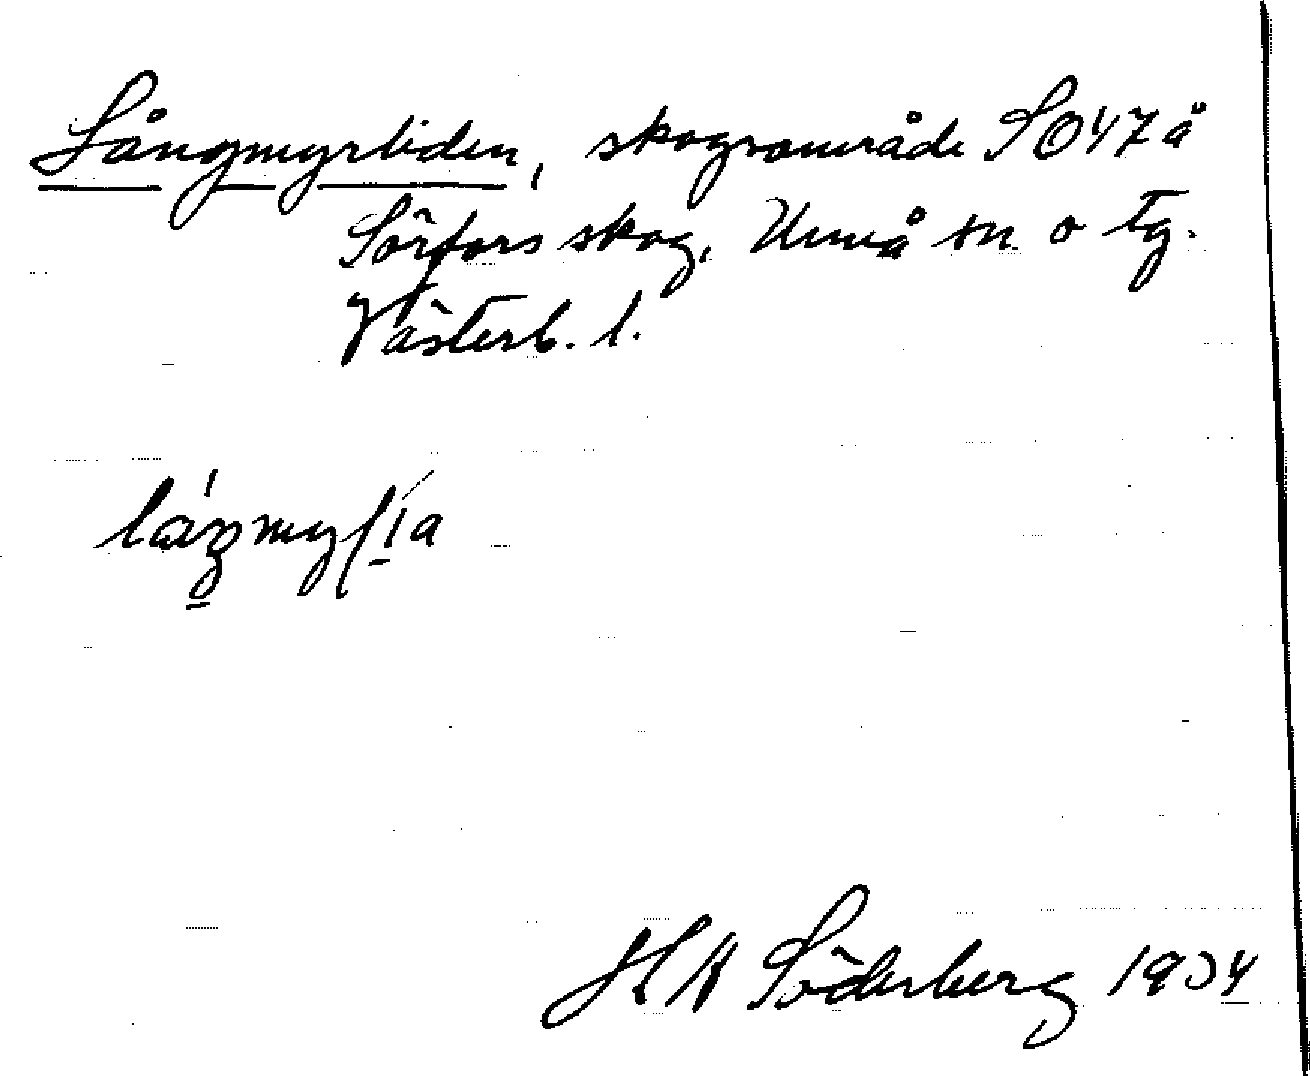 Långmyrliden, skogsområde SO47 å
Sörfors skog, Umeå sn o tg.
Västerb. l.
H A Söderberg 1934